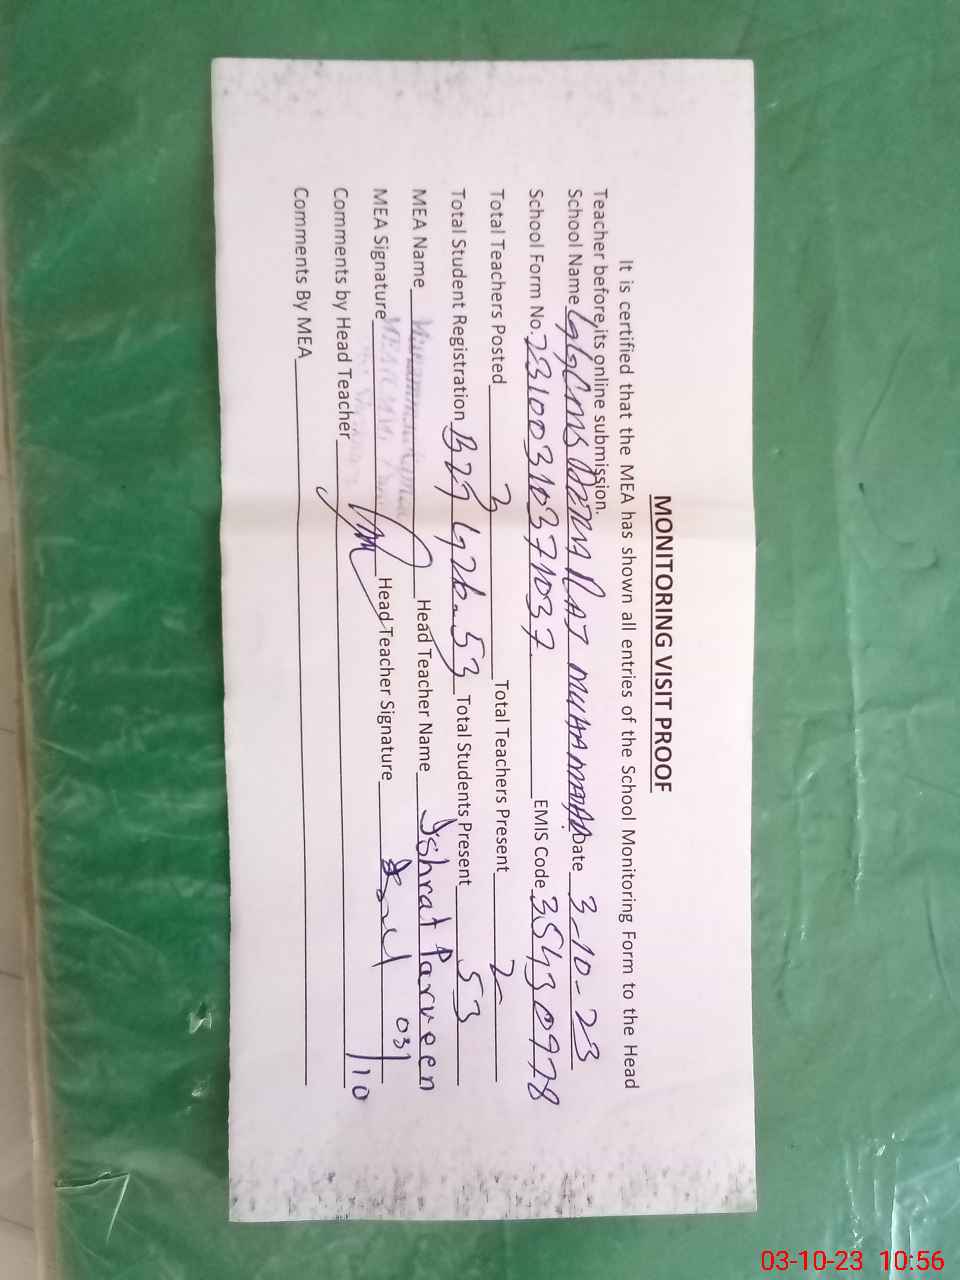 MONITORING VISIT PROOF
It is certified that the MEA has shown all entries of the School Monitoring Form to the Head
Teacher before its online submission.
School Name GGCMS MUHAMMAD Date 3-10-23
School Form No. 23100310371037 EMIS Code 35430978
Total Teachers Posted Total Teachers Present 2
Total Student Registration B27 G26=53 Total Students Present 53
MEA Name Head Teacher Name Ishrat Parveen
MEA Signature Head Teacher Signature
Comments by Head Teacher 03/10
Comments By MEA
03-10-23 10:56